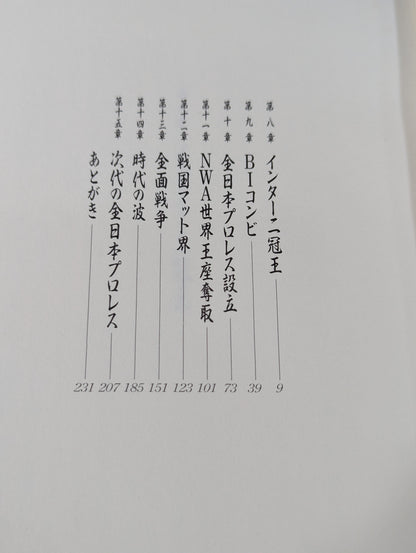 第八章 インター二冠王 9
第九章 BIコンビ 39
第十章 全日本プロレス設立 73
第十一章 NWA世界王座奪取 101
第十二章 戦国マット界 123
第十三章 全面戦争 151
第十四章 時代の波 185
第十五章 次代の全日本プロレス 207
あとがき 231